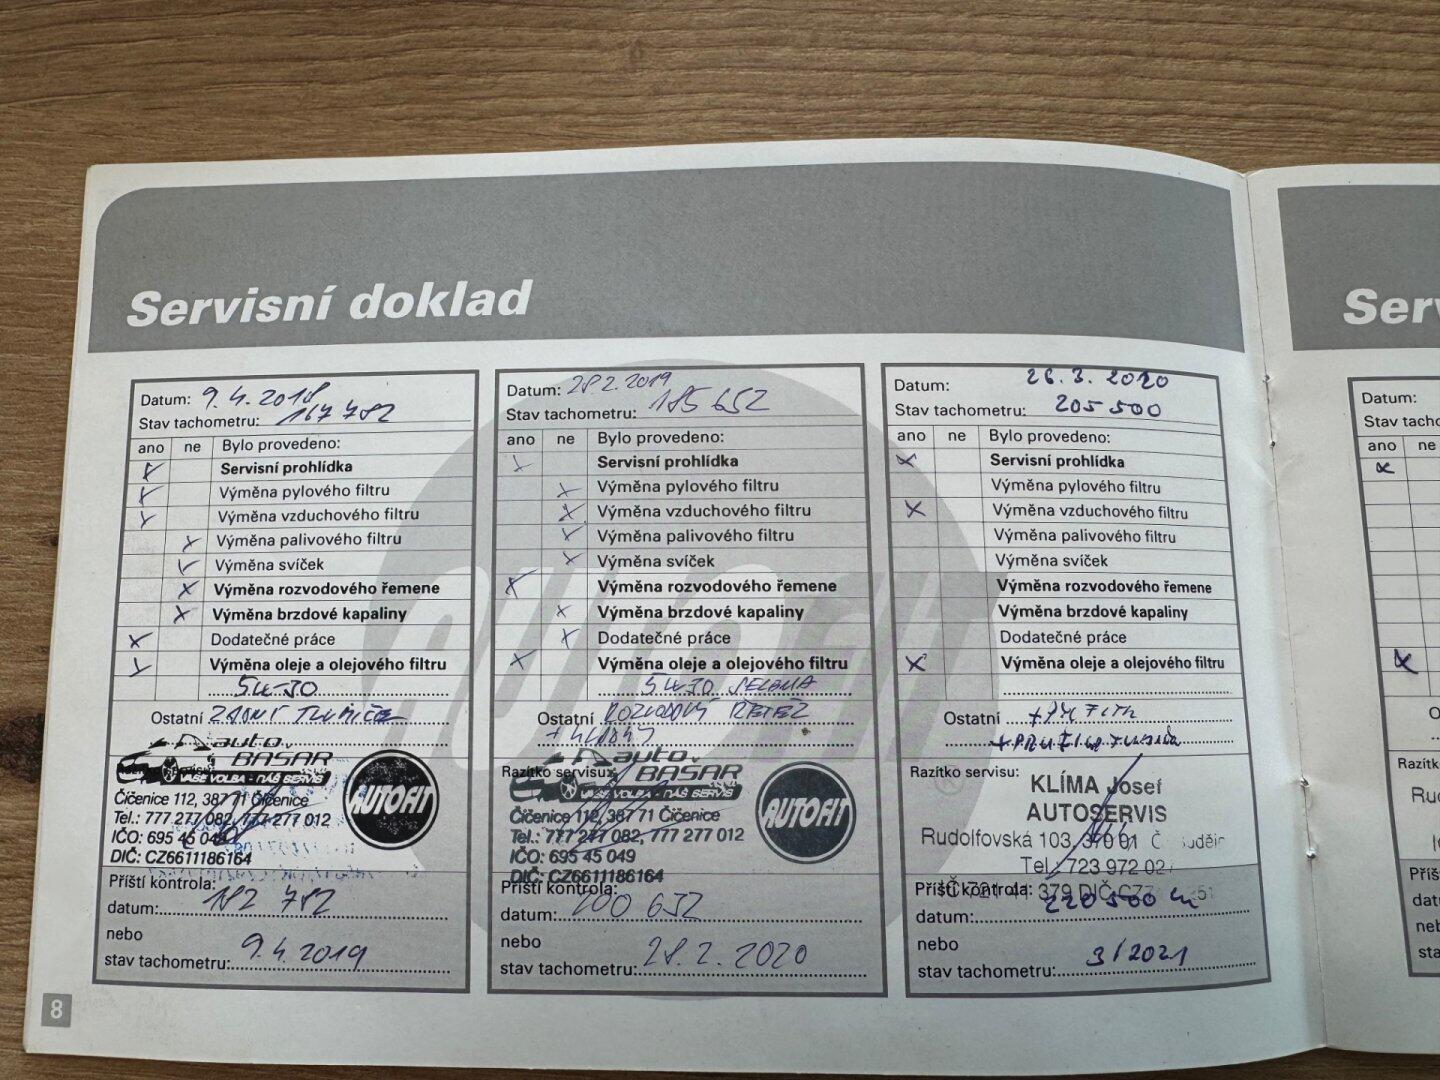 Servisní doklad
Datum: 9.4.2018
Stav tachometru: 167 782
ano ne Bylo provedeno:
Servisní prohlídka
Výměna pylového filtru
Výměna vzduchového filtru
Výměna palivového filtru
Výměna svíček
Výměna rozvodového řemene
Výměna brzdové kapaliny
Dodatečné práce
Výměna oleje a olejového filtru
5W-30
Ostatní ZADNÍ TLUMIČE
auto
BASAR
VAŠE VOLBA - NÁŠ SERVIS
AUTOFIT
Čičenice 112, 387 71 Čičenice
Tel.: 777 277 082, 777 277 012
IČO: 695 45 049
DIČ: CZ6611186164
Příští kontrola:
datum: 182 782
nebo
stav tachometru: 9.4.2019
Datum: 28.2.2019
Stav tachometru: 185 652
ano ne Bylo provedeno:
Servisní prohlídka
Výměna pylového filtru
Výměna vzduchového filtru
Výměna palivového filtru
Výměna svíček
Výměna rozvodového řemene
Výměna brzdové kapaliny
Dodatečné práce
Výměna oleje a olejového filtru
5W30 SELENIA
Ostatní ROZVODOVÝ ŘETĚZ
Razítko servisu:
auto
BASAR
VAŠE VOLBA - NÁŠ SERVIS
AUTOFIT
Čičenice 112, 387 71 Čičenice
Tel.: 777 277 082, 777 277 012
IČO: 695 45 049
DIČ: CZ6611186164
Příští kontrola:
datum: 200 652
nebo
stav tachometru: 28.2.2020
Datum: 26.3.2020
Stav tachometru: 205 500
ano ne Bylo provedeno:
Servisní prohlídka
Výměna pylového filtru
Výměna vzduchového filtru
Výměna palivového filtru
Výměna svíček
Výměna rozvodového řemene
Výměna brzdové kapaliny
Dodatečné práce
Výměna oleje a olejového filtru
Ostatní
Razítko servisu:
KLÍMA Josef
AUTOSERVIS
Rudolfovská 103, 370 01 Č
Tel.: 723 972 02
Příští kontrola:
datum: 220 500
nebo
stav tachometru: 3/2021
8
Datum:
ano ne